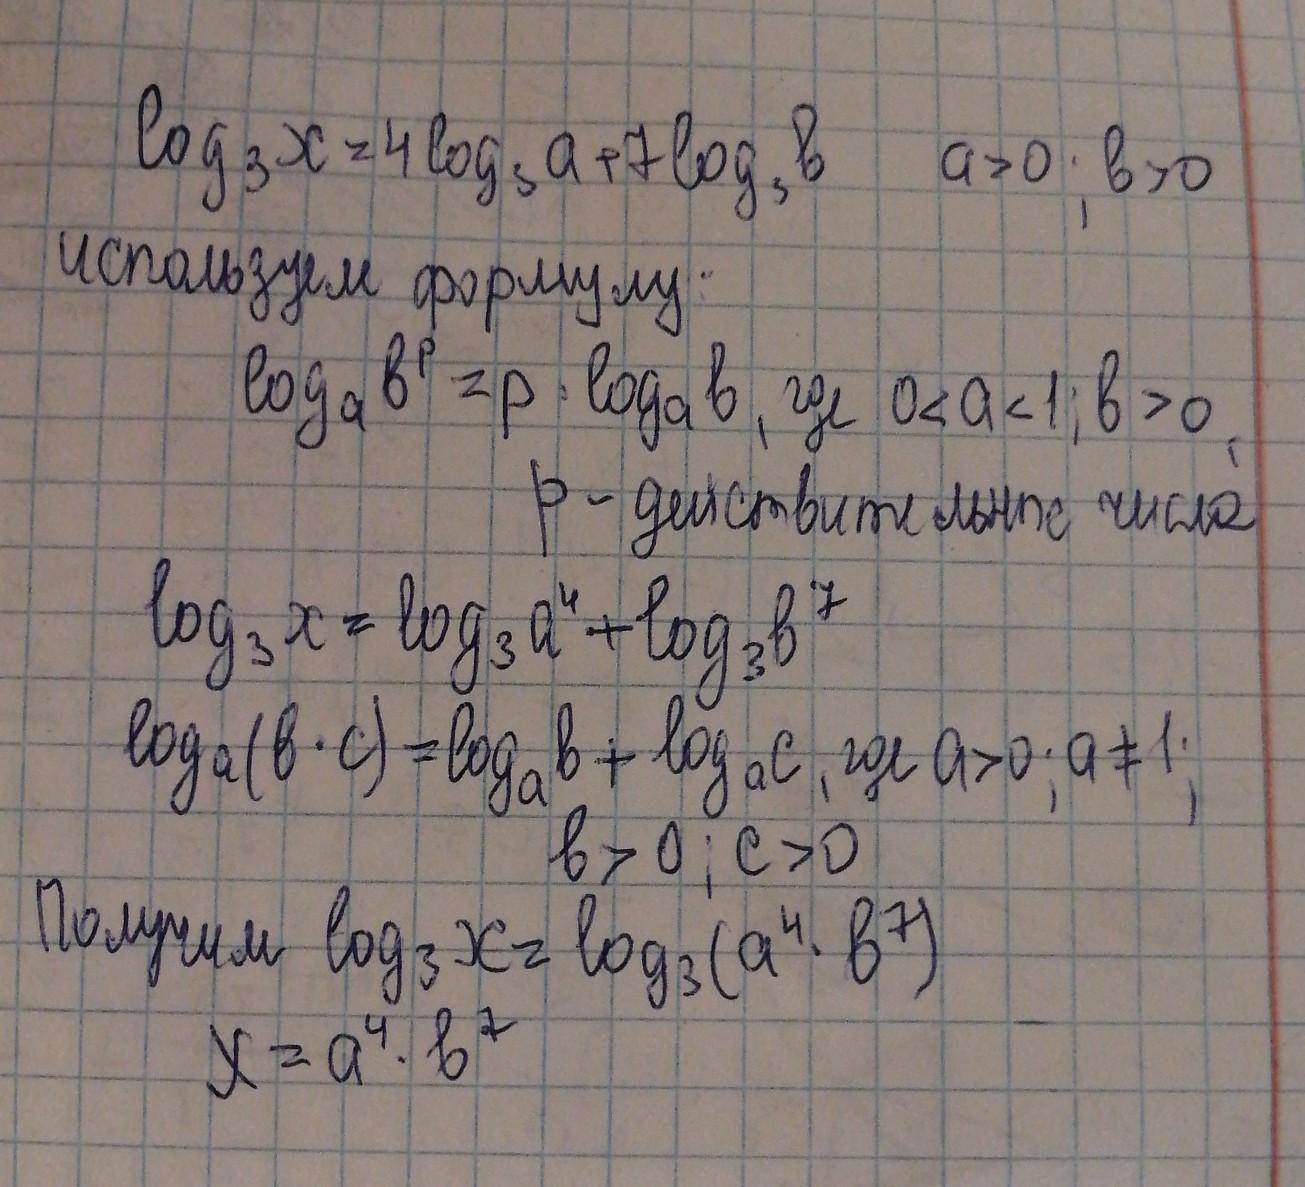 log₃x=4log₃a+7log₃b a>0; b>0
используем формулу:
logₐbᵖ=p·logₐb, где 0<a<1; b>0,
p-действительные числа
log₃x=log₃a⁴+log₃b⁷
logₐ(b·c)=logₐb+logₐc, где a>0; a≠1;
b>0; c>0
Получим log₃x=log₃(a⁴·b⁷)
x=a⁴·b⁷